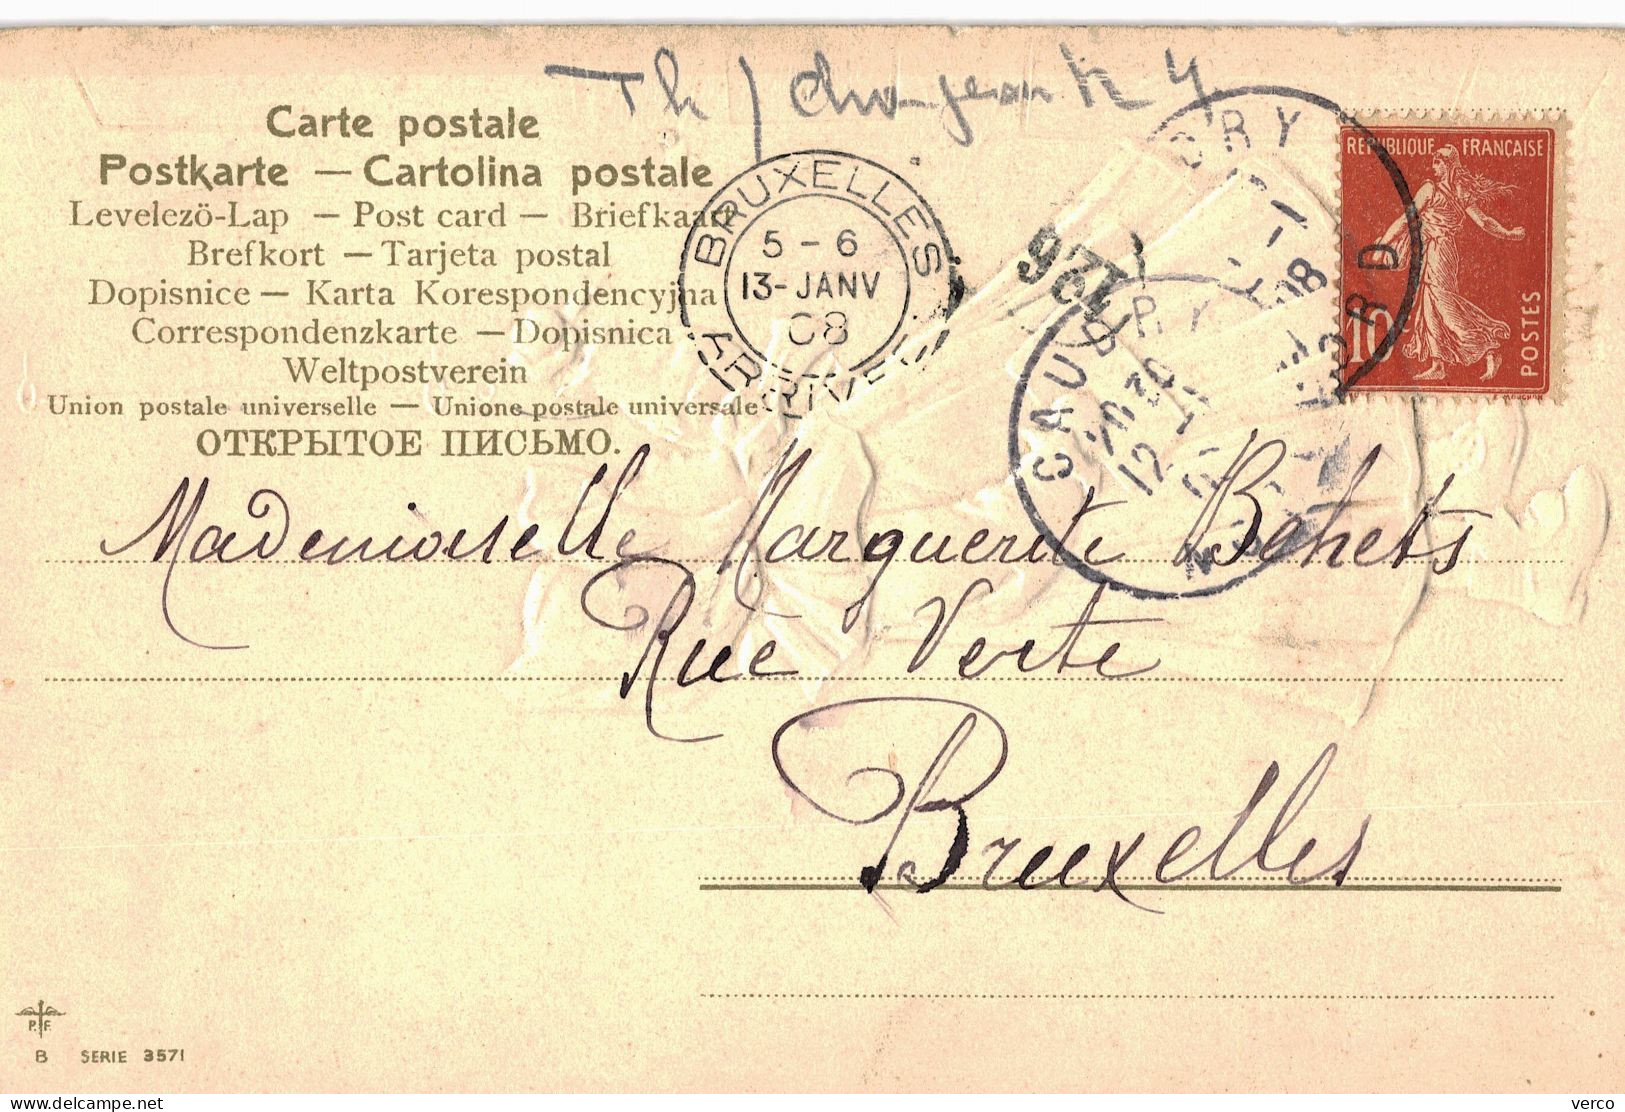 Carte postale
Postkarte — Cartolina postale
Levelező-Lap — Post card — Briefkaart
Brefkort — Tarjeta postal
Dopisnice — Karta Korespondencyjna
Correspondenzkarte — Dopisnica
Weltpostverein
Union postale universelle — Unione postale universale
ОТКРЫТОЕ ПИСЬМО.
BRUXELLES
5 - 6
13-JANV
08
ARRIVÉE
126
CAUDRY
20 30
12 -1
NORD
RÉPUBLIQUE FRANÇAISE
10c
POSTES
Mademoiselle Marguerite Behets
Rue Verte
Bruxelles
P. F.
B SERIE 3571
verco